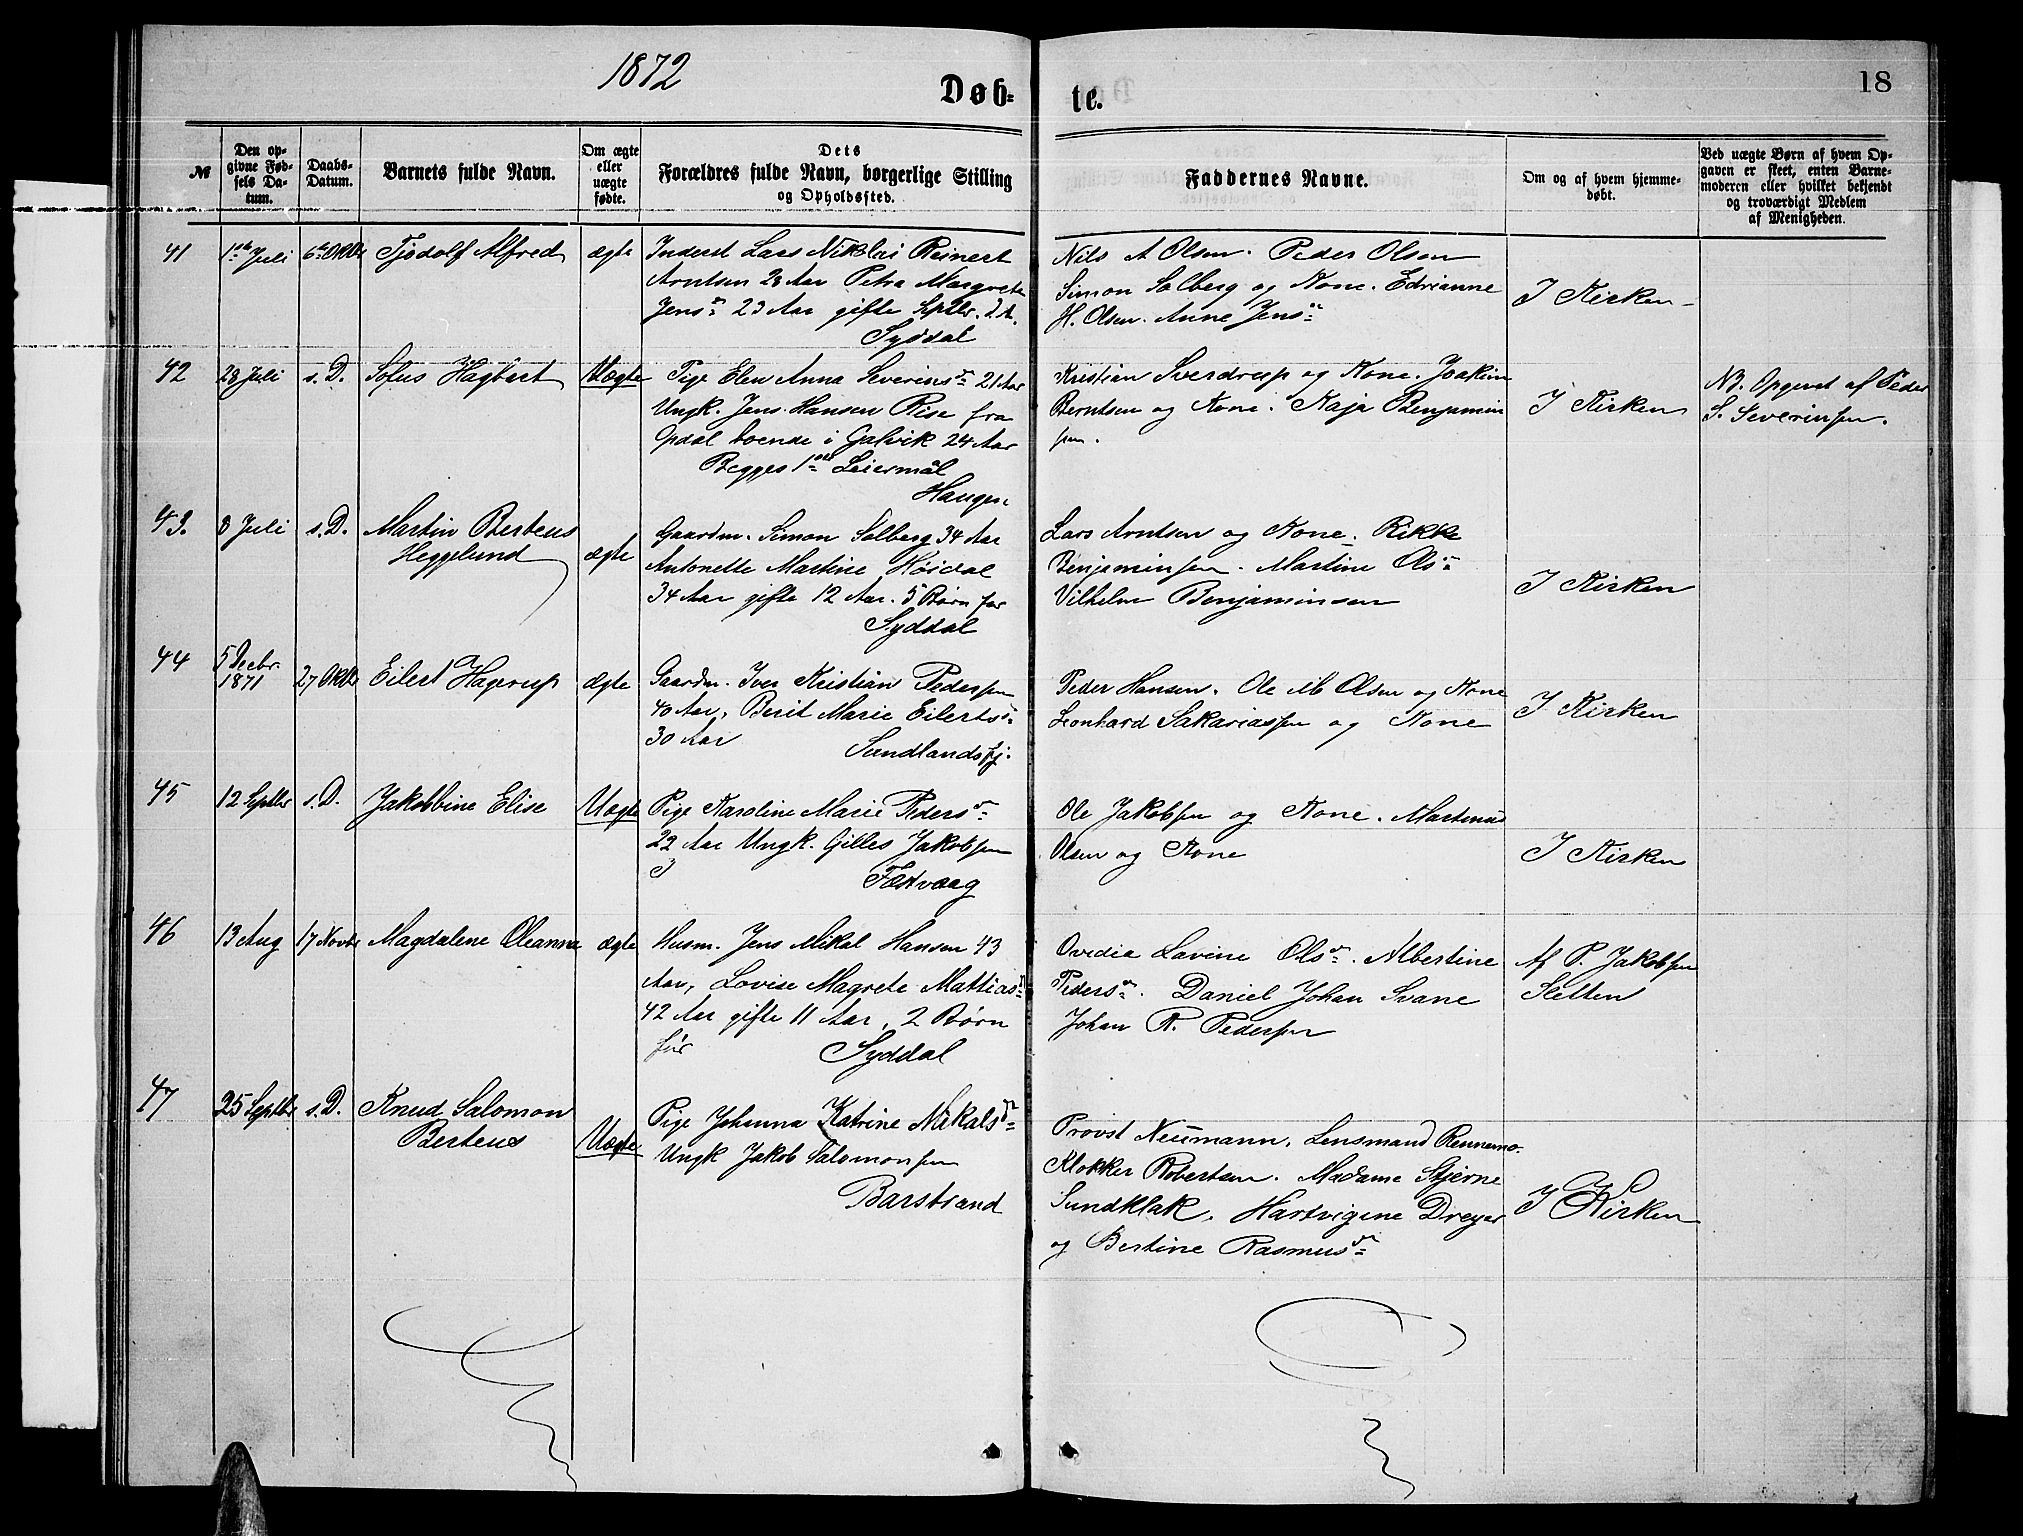 1872
Døb-
te.
18
№
Den op-
givne Fød-
sels Da-
tum.
Daabs-
Datum.
Barnets fulde Navn.
Om ægte
eller
uægte
fødte.
Dets
Forældres fulde Navn, borgerlige Stilling
og Opholdssted.
Faddernes Navne.
Om og af hvem hjemme-
døbt.
Ved uægte Børn af hvem Op-
gaven er skeet, enten Barne-
moderen eller hvilket bekjendt
og troværdigt Medlem
af Menigheden.
41
1ste Juli
6te Oktbr
Tjodolf Alfred
ægte
Inderst Lars Nikolai Reinert
Arntsen 28 Aar Petra Margrete
Jensdr 23 Aar gifte Septbr. d. A.
Syddal
Nils A Olsen. Peder Olsen
Simon Solberg og Kone. Edrianne
H. Olsen. Anne Jensdr
I Kirken
42
28 Juli
s. D.
Sofus Hagbart
Uægte
Pige Elen Anna Severinsdr 21 Aar
Ungk. Jens Hansen Rise fra
Opdal boende i Galvik 24 Aar
Begges 1ste Leiermål
Haugen
Kristian Sverdrup og Kone. Joakim
Berntsen og Kone. Kaja Benjamin
sen.
I Kirken
NB. Opgivet af Peder
S. Severinsen.
43.
8 Juli
s. D.
Martin Berteus
Heggelund
ægte
Gaardm. Simon Solberg 34 Aar
Antonette Martine Høidal
34 Aar gifte 12 Aar. 5 Børn før
Syddal
Lars Arntsen og Kone. Rikke
Benjaminsen. Martine Olsdr
Vilhelm Benjaminsen
I Kirken
44
5 Decbr.
1871
27 Oktbr
Eilert Hagerup
ægte
Gaardm. Iver Kristian Pedersen
40 Aar, Berit Marie Eilertsdr
30 Aar
Sundlandsfj.
Peder Hansen. Ole M Olsen og Kone
Leonhard Sakariassen og Kone
I Kirken
45
12 Septbr
s. D.
Jakobbine Elise
Uægte
Pige Karoline Marie Pedersdr
22 Aar Ungk. Gilles Jakobsen
Festvaag
Ole Jakobsen og Kone. Martinus
Olsen og Kone
I Kirken
46
13 Aug
17 Novbr
Magdalene Oleanna
ægte
Husm. Jens Mikal Hansen 43
Aar, Lovise Magrete Mattiasdr
42 Aar gifte 11 Aar, 2 Børn
før
Syddal
Ovedia Lavine Olsdr. Albertine
Pedersdr. Daniel Johan Svane
Johan R. Pedersen
Af P. Jakobsen
Sletten
47
25 Septbr
s. D.
Knud Salomon
Berteus
Uægte
Pige Johanna Katrine Nikalsdr
Ungk Jakob Salomonsen
Barstrand
Provst Neumann. Lensmand Rennemo.
Klokker Robertsen. Madame Stjerne
Sundklak. Hartvigine Dreyer
og Bertine Rasmusdr
I Kirken